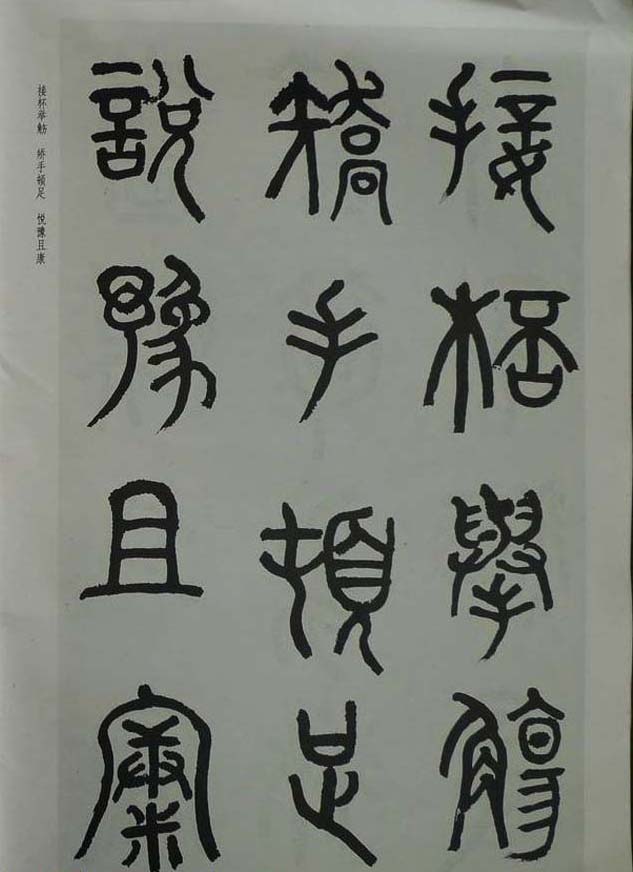 接桮舉觴
矯手頓足
說豫且㝩
接杯举觞 矫手顿足 悦豫且康